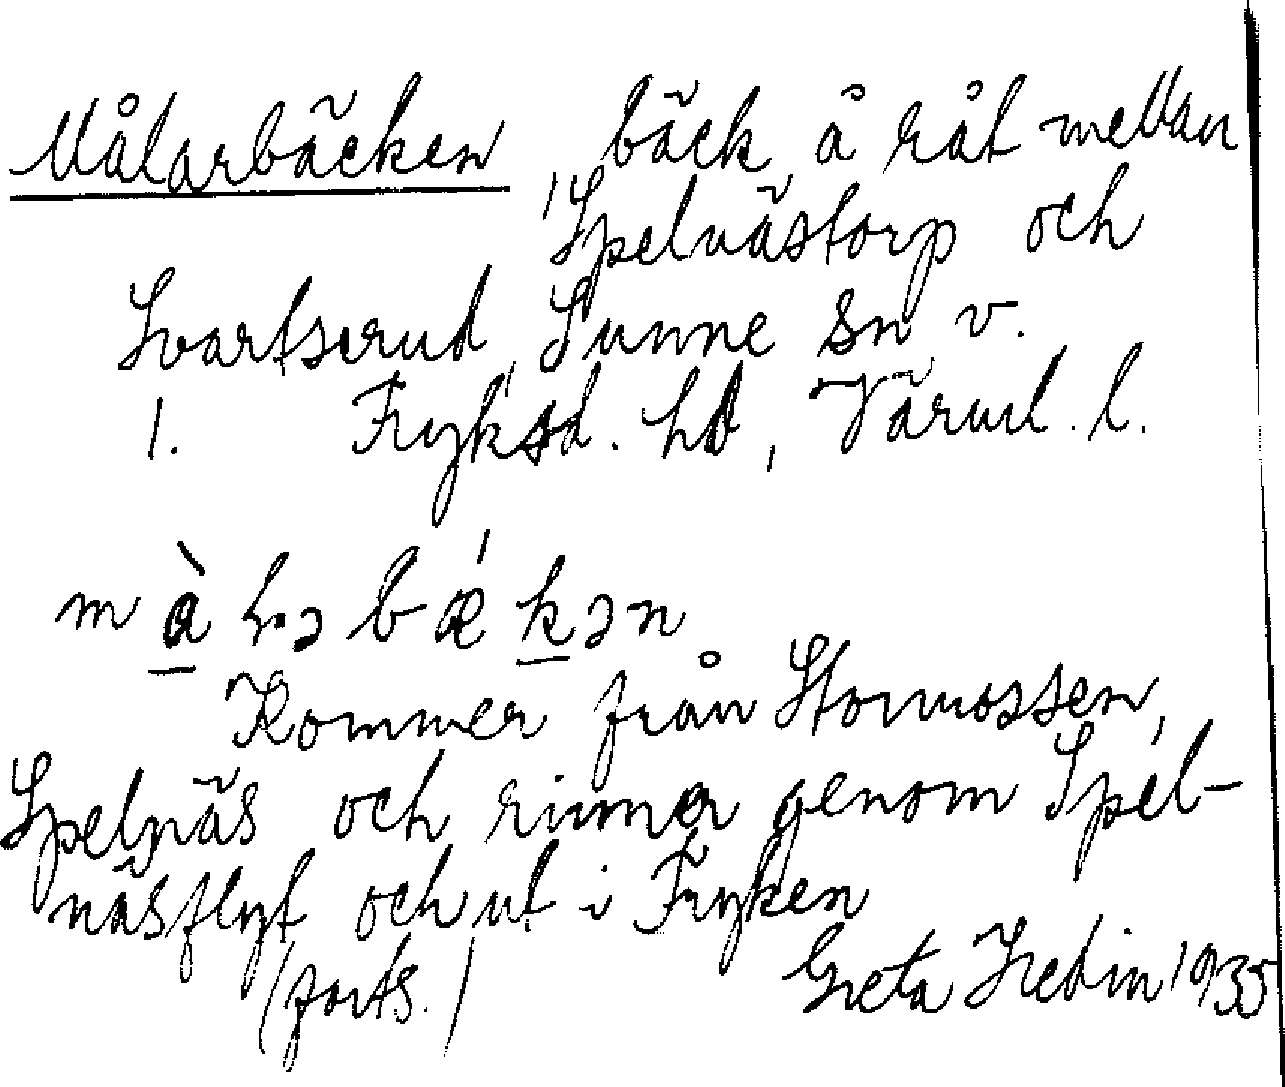 Målarbäcken, bäck å råt mellan
Spelnästorp och
Svartserud, Sunne sn v.
1. Fryksd. hd, Värml. l.
Kommer från Stormossen,
Spelnäs och rinner genom Spel-
näsflyt och ut i Fryken
(forts.) Greta Hedin 1935